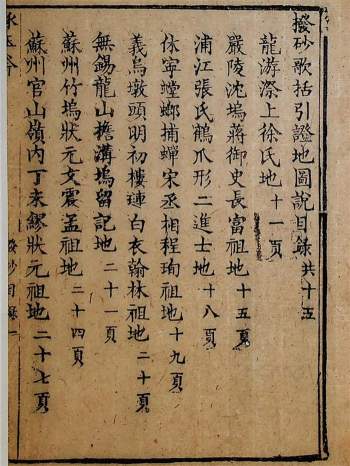 撥砂歌括引證地圖說目錄 共十五
龍游漈上徐氏地 十一頁
嚴陵沈塢蔣御史長富祖地 十五頁
浦江張氏鶴爪形二進士地 十八頁
休寧螳螂捕蟬宋丞相程珣祖地 十九頁
義烏墩頭明初樓璉白衣翰林祖地 二十頁
無錫龍山擔溝塢留記地 二十一頁
蘇州竹塢狀元文震孟祖地 二十四頁
蘇州官山嶺內丁未繆狀元祖地 二十七頁
撥砂目錄 一